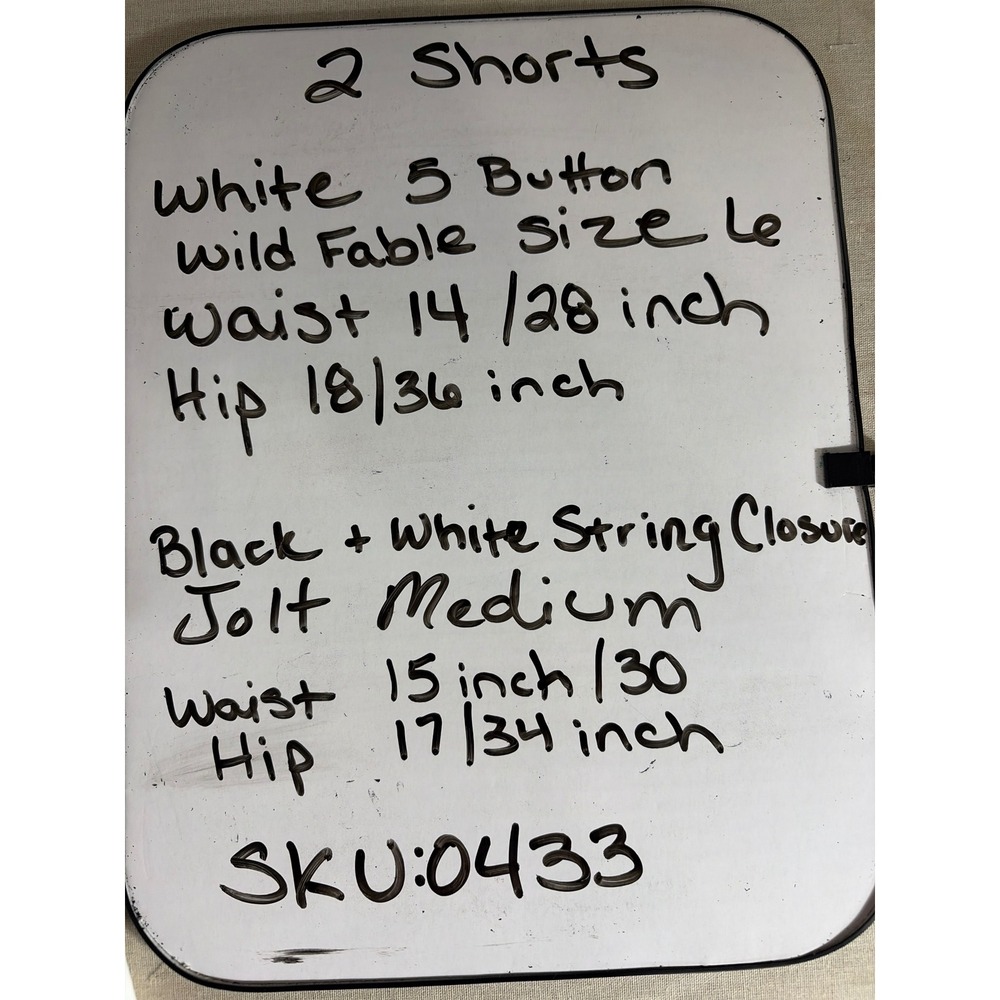 2 Shorts
White 5 Button
Wild Fable size 6
Waist 14 /28 inch
Hip 18/36 inch
Black + White String Closure
Jolt Medium
Waist 15 inch /30
Hip 17/34 inch
SKU:0433